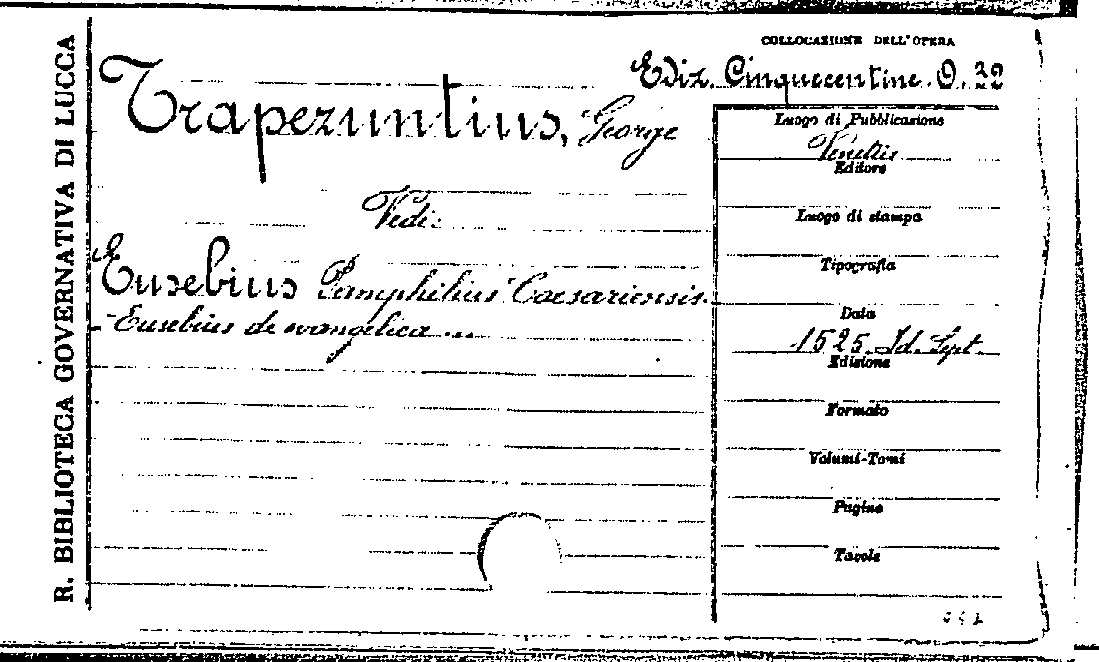 R. BIBLIOTECA GOVERNATIVA DI LUCCA
COLLOCAZIONE DELL'OPERA
Ediz. Cinquecentine. O. 32
Trapezuntius, George
Vedi:
Eusebius Pamphilius Caesariensis.
- Eusebius de evangelica...
Luogo di Pubblicazione
Venetiis
Editore
Luogo di stampa
Tipografia
Data
1525. Id. Sept.
Edizione
Formato
Volumi-Tomi
Pagine
Tavole